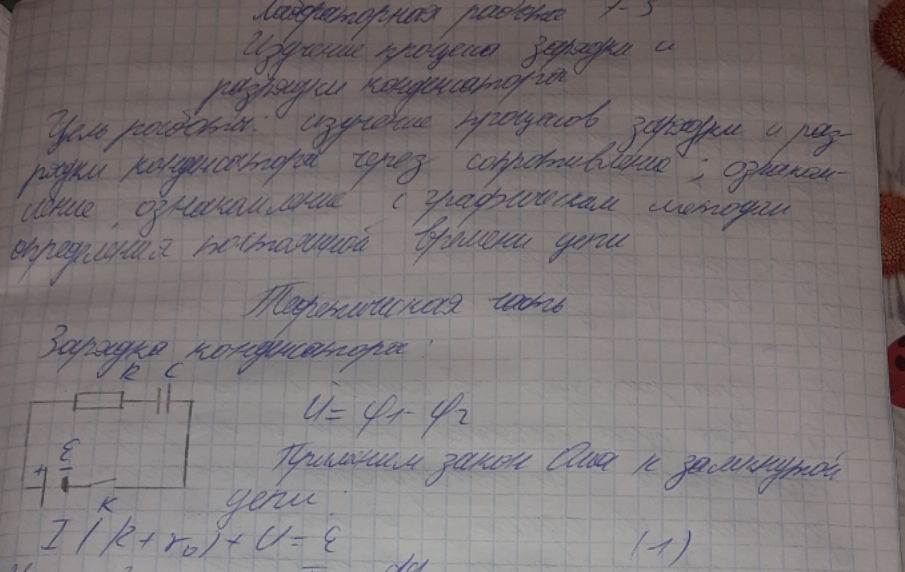 Лабораторная работа 7-3
Изучение процесса зарядки и
разрядки конденсатора
Цель работы: изучение процесов зарядки и раз-
рядки конденсатора через сопротивление; ознаком-
ление, ознакомление с графическим методам
определения постоянной времени цепи
Теоретическая часть
Зарядка конденсатора:
R C
U = φ1 - φ2
ε
+
Применим закон Ома к замкнутой
K
цепи:
I(R + r₀) + U = ε (1)